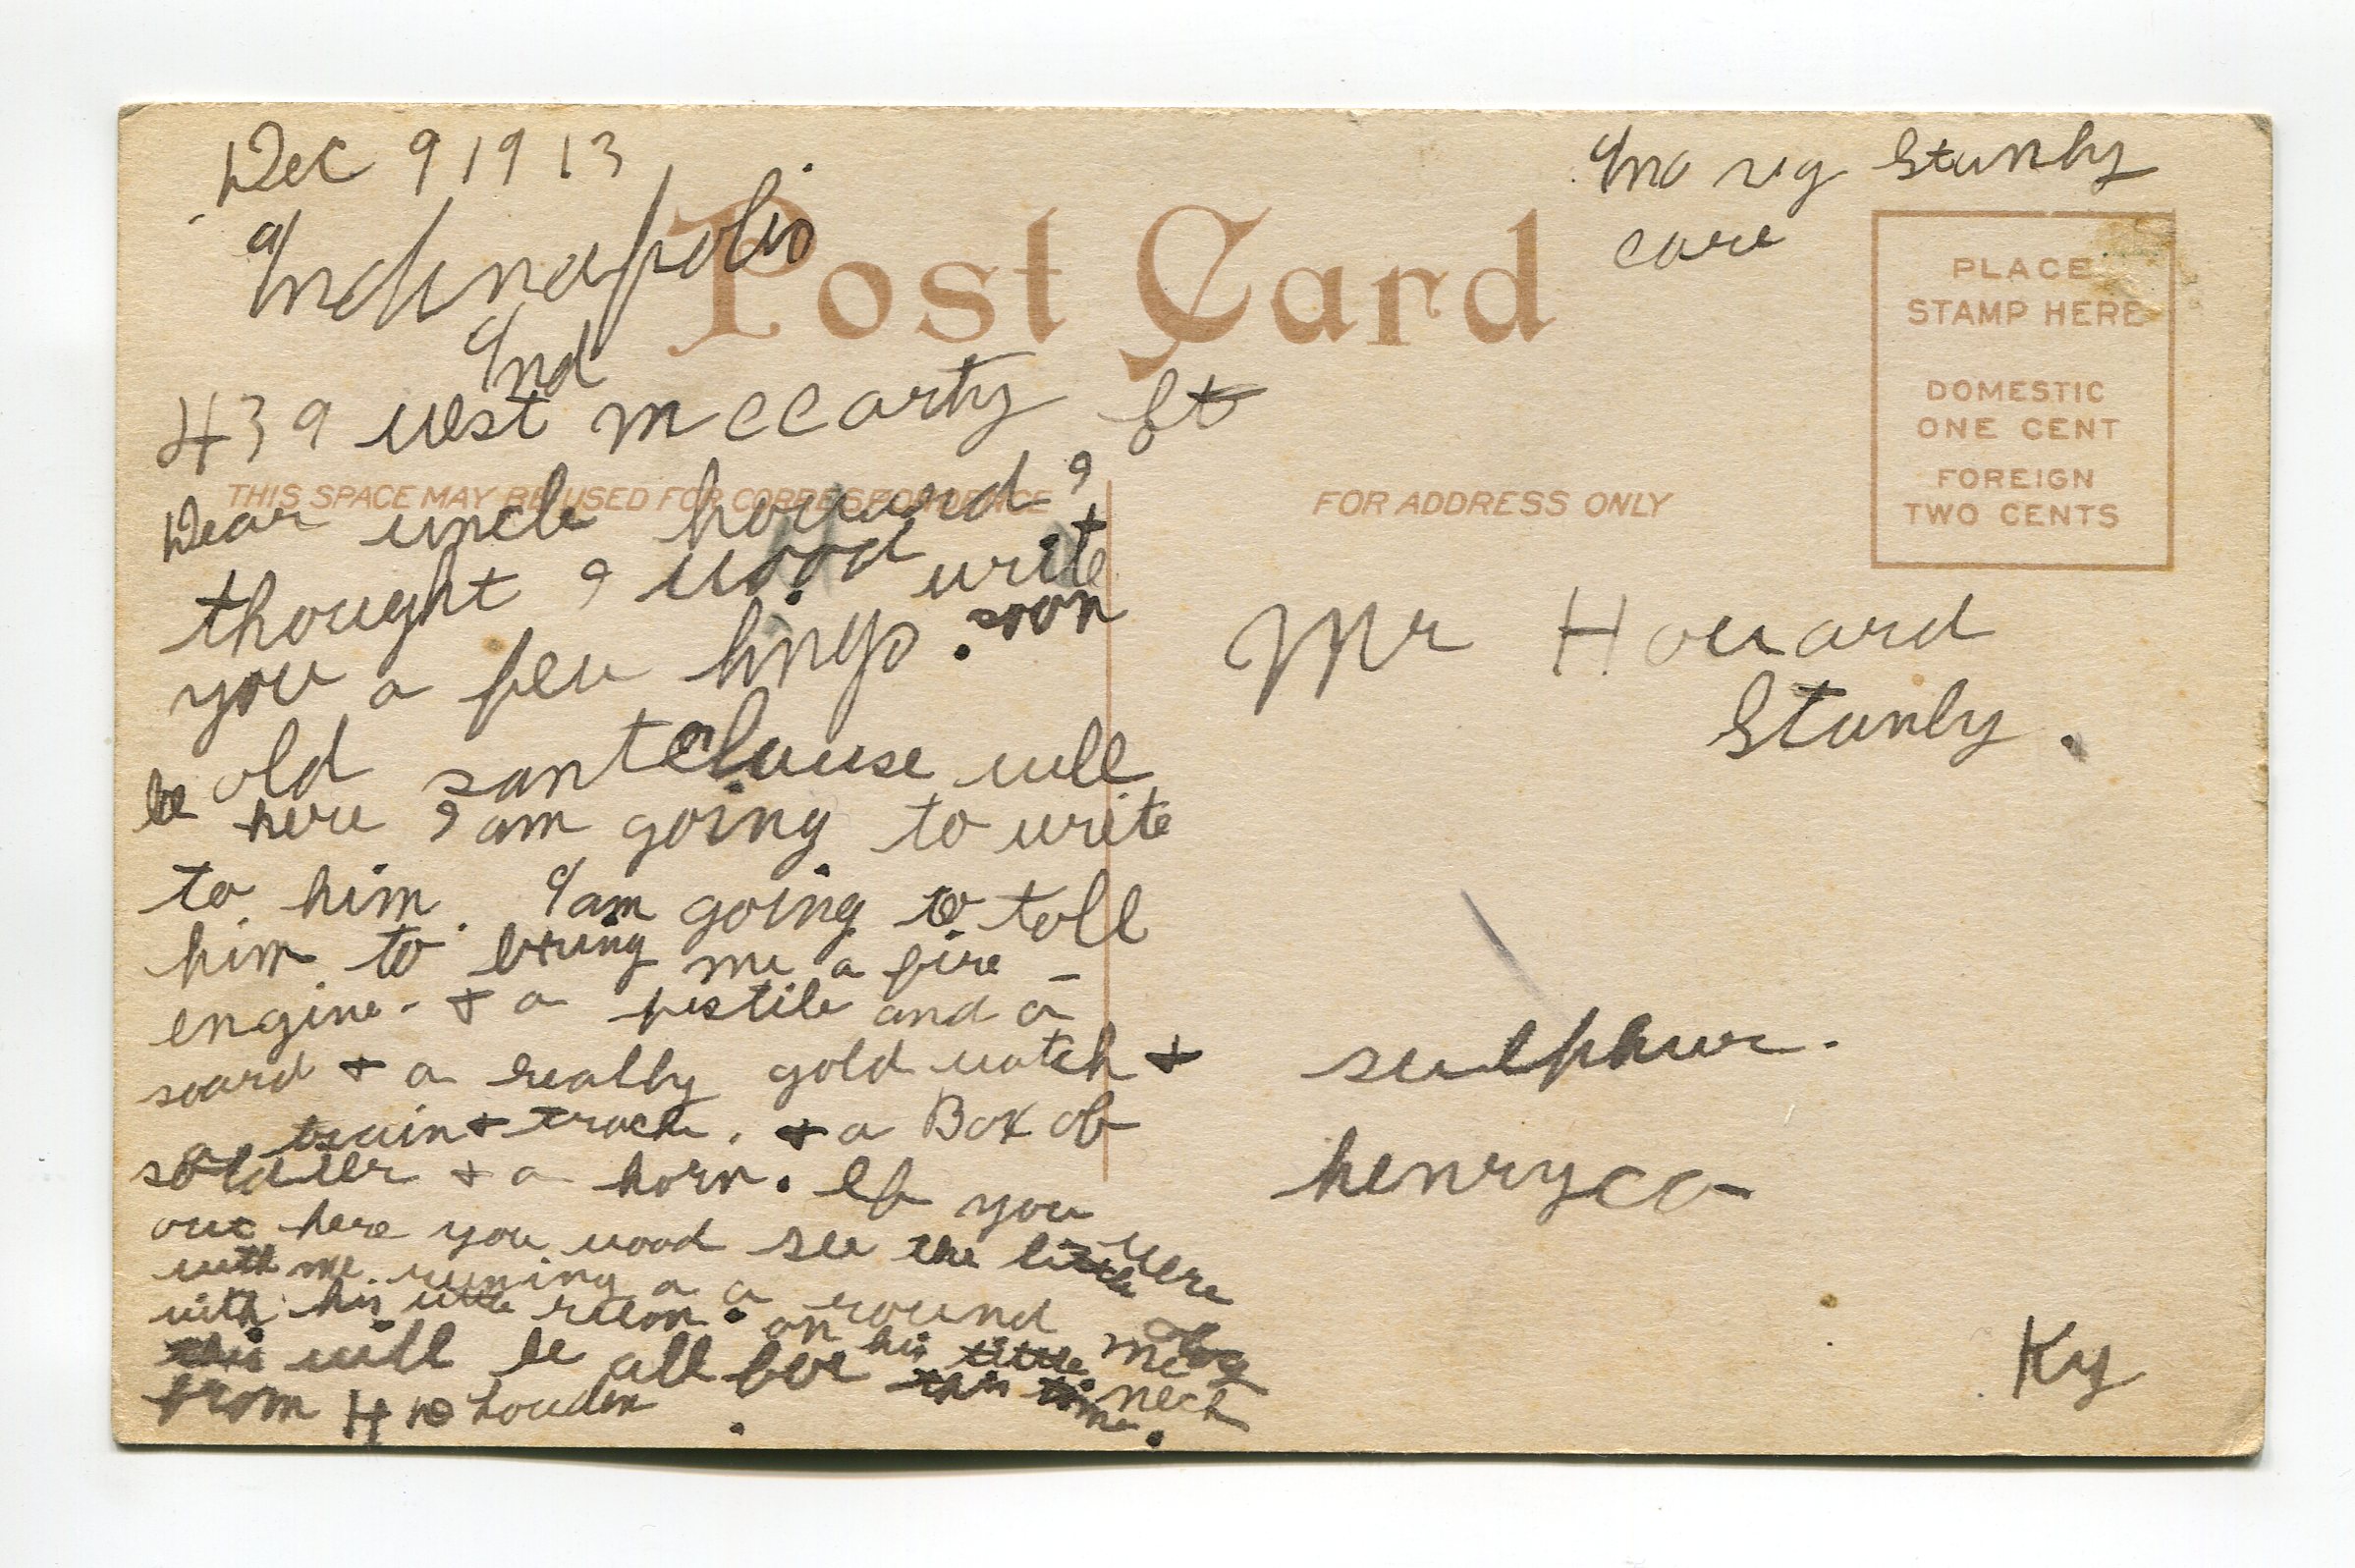 Dec 9 1913
Indinapolis
Ind
439 west mccarty St
Mary Stanly
care
Post Card
PLACE
STAMP HERE
DOMESTIC
ONE CENT
FOREIGN
TWO CENTS
THIS SPACE MAY BE USED FOR CORRESPONDENCE
FOR ADDRESS ONLY
Dear uncle howard I
thought I wood write
you a few lings. soon
old santclause will
be here I am going to write
to him. I am going to tell
him to bring me a fire-
engine. + a pistile and a
soard + a really gold watch +
a train + track. + a Box of
soldier + a horn. If you
were
out here you wood see the little
with me runing a a round
with his little on his little neck
this will be all for this time.
from H Louden
Mr Howard
Stanly.
sulphur.
henry co
Ky